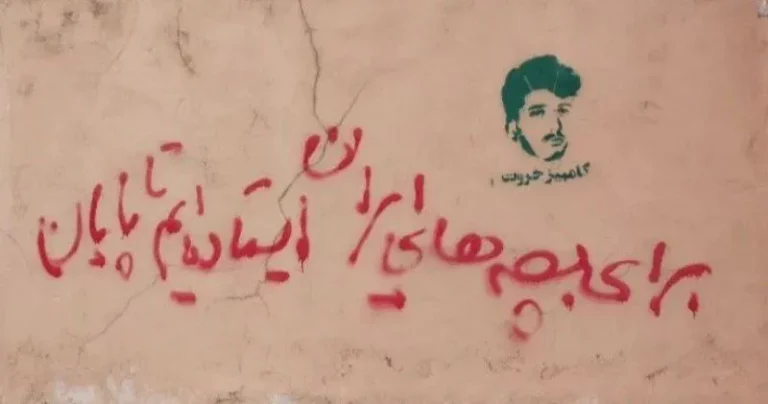 کامبیز خروت
برای بچه های ایران ایستاده ایم تا پایان